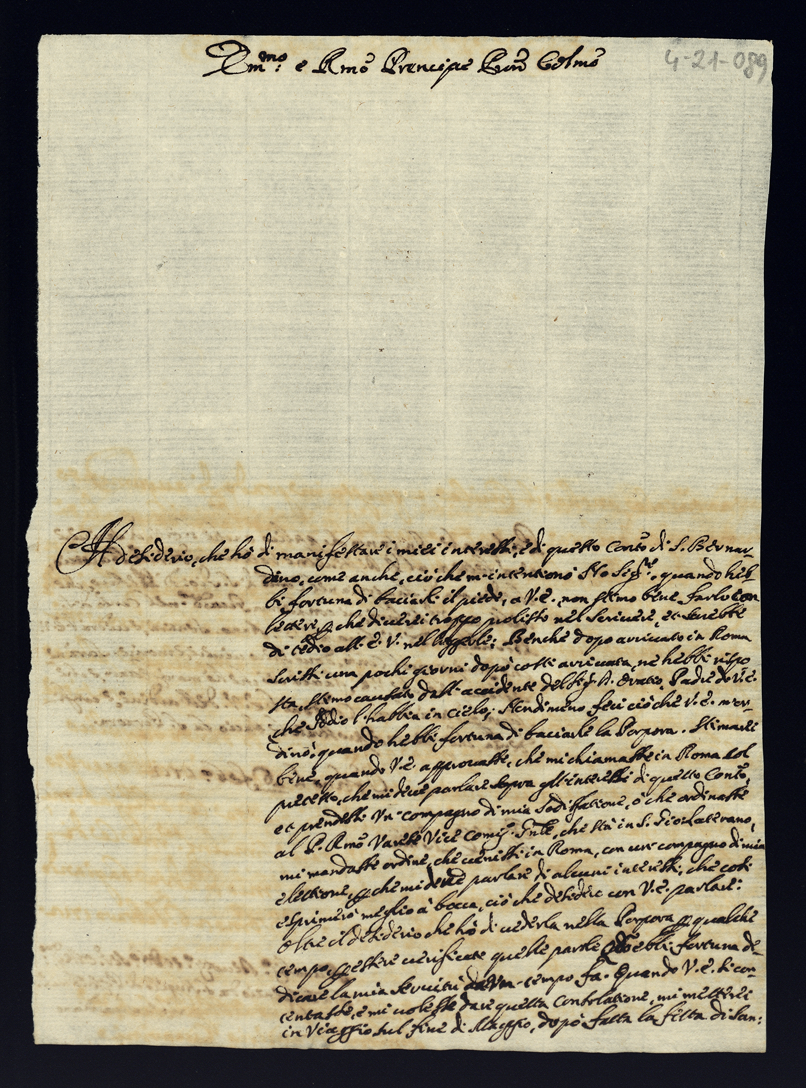 Emmo: e Rmo Prencipe Pron Colmo
4-21-089
Il desiderio, che hò di manifestare i miei interessi, e di questo Conto di S. Bernar-
dino, come anche, ciò che m'intentionò N'ro Sigre, quando heb-
bi fortuna di baciarli il piede, a V.E. non stimo bene farlo con
lettere, che diverei troppo prolisso nel scrivere, et serebbe
di tedio all'E.V. nel leggerle; Benche dopo arrivato in Roma
scrissi una pochi giorni dopò costì arrivata, ne hebbi rispo
sta, stimo causato dall'accidente del Sig. D. Padre di V.E.
che Iddio l'habbia in cielo; Nondimeno feci ciò che V.E. m'or-
dinò, quando hebbi fortuna di baciarle la Porpora. Stimarei
bene, quando V.E. approvasse, che mi chiamasse in Roma col
pretesto, che mi deve parlare sopra gl'interessi di questo Conto,
et prendessi un compagno di mia sodisfatione, ò che ordinasse
al P. Rmo Varese Vice Comis. Gnle, che stà in S. Gio: Laterano,
mi mandasse ordine, che venissi in Roma, con un compagno di mia
elettione, che mi deve parlare di alcuni interessi, che così
esprimerò meglio à bocca, ciò che desidero con V.E. parlare:
Oltre il desiderio che hò di vederla nella Porpora qualche
tempo, essere verificate quelle parole ebbi fortuna de-
dicare la mia servitù un tempo fa. Quando V.E. si con-
tentasse, e mi volesse dare questa consolatione, mi metterei
in Viaggio sul fine di Maggio, dopò fatta la festa di San: